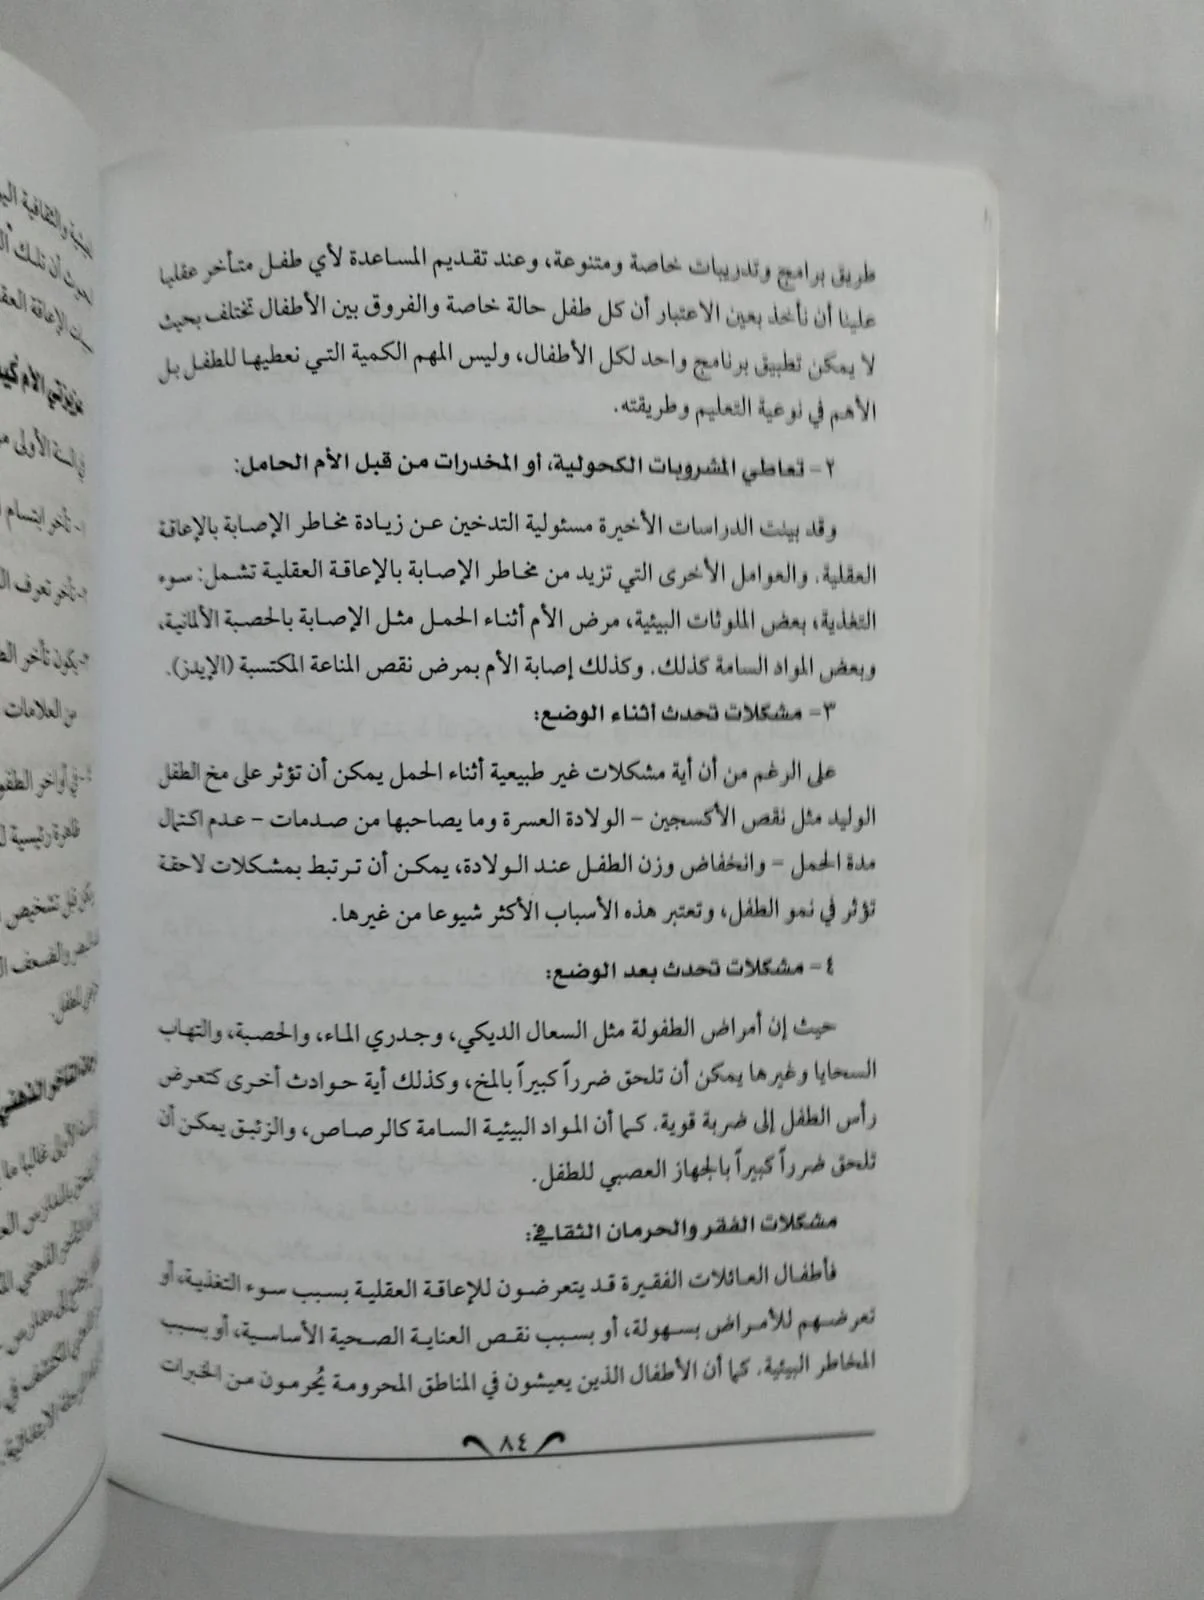 طريق برامج وتدريبات خاصة ومتنوعة، وعند تقديم المساعدة لأي طفل متأخر عقليا
علينا أن نأخذ بعين الاعتبار أن كل طفل حالة خاصة والفروق بين الأطفال تختلف بحيث
لا يمكن تطبيق برنامج واحد لكل الأطفال، وليس المهم الكمية التي نعطيها للطفل بل
الأهم في نوعية التعليم وطريقته.
٢- تعاطي المشروبات الكحولية، أو المخدرات من قبل الأم الحامل:
وقد بينت الدراسات الأخيرة مسئولية التدخين عن زيادة مخاطر الإصابة بالإعاقة
العقلية. والعوامل الأخرى التي تزيد من مخاطر الإصابة بالإعاقة العقلية تشمل: سوء
التغذية، بعض الملوثات البيئية، مرض الأم أثناء الحمل مثل الإصابة بالحصبة الألمانية،
وبعض المواد السامة كذلك. وكذلك إصابة الأم بمرض نقص المناعة المكتسبة (الإيدز).
٣- مشكلات تحدث أثناء الوضع:
على الرغم من أن أية مشكلات غير طبيعية أثناء الحمل يمكن أن تؤثر على مخ الطفل
الوليد مثل نقص الأكسجين – الولادة العسرة وما يصاحبها من صدمات – عدم اكتمال
مدة الحمل – وانخفاض وزن الطفل عند الولادة، يمكن أن ترتبط بمشكلات لاحقة
تؤثر في نمو الطفل، وتعتبر هذه الأسباب الأكثر شيوعا من غيرها.
٤- مشكلات تحدث بعد الوضع:
حيث إن أمراض الطفولة مثل السعال الديكي، وجدري الماء، والحصبة، والتهاب
السحايا وغيرها يمكن أن تلحق ضرراً كبيراً بالمخ، وكذلك أية حوادث أخرى كتعرض
رأس الطفل إلى ضربة قوية. كما أن المواد البيئية السامة كالرصاص، والزئبق يمكن أن
تلحق ضرراً كبيراً بالجهاز العصبي للطفل.
مشكلات الفقر والحرمان الثقافي:
فأطفال العائلات الفقيرة قد يتعرضون للإعاقة العقلية بسبب سوء التغذية، أو
تعرضهم للأمراض بسهولة، أو بسبب نقص العناية الصحية الأساسية، أو بسبب
المخاطر البيئية. كما أن الأطفال الذين يعيشون في المناطق المحرومة يُحرمون من الخبرات
٨٤